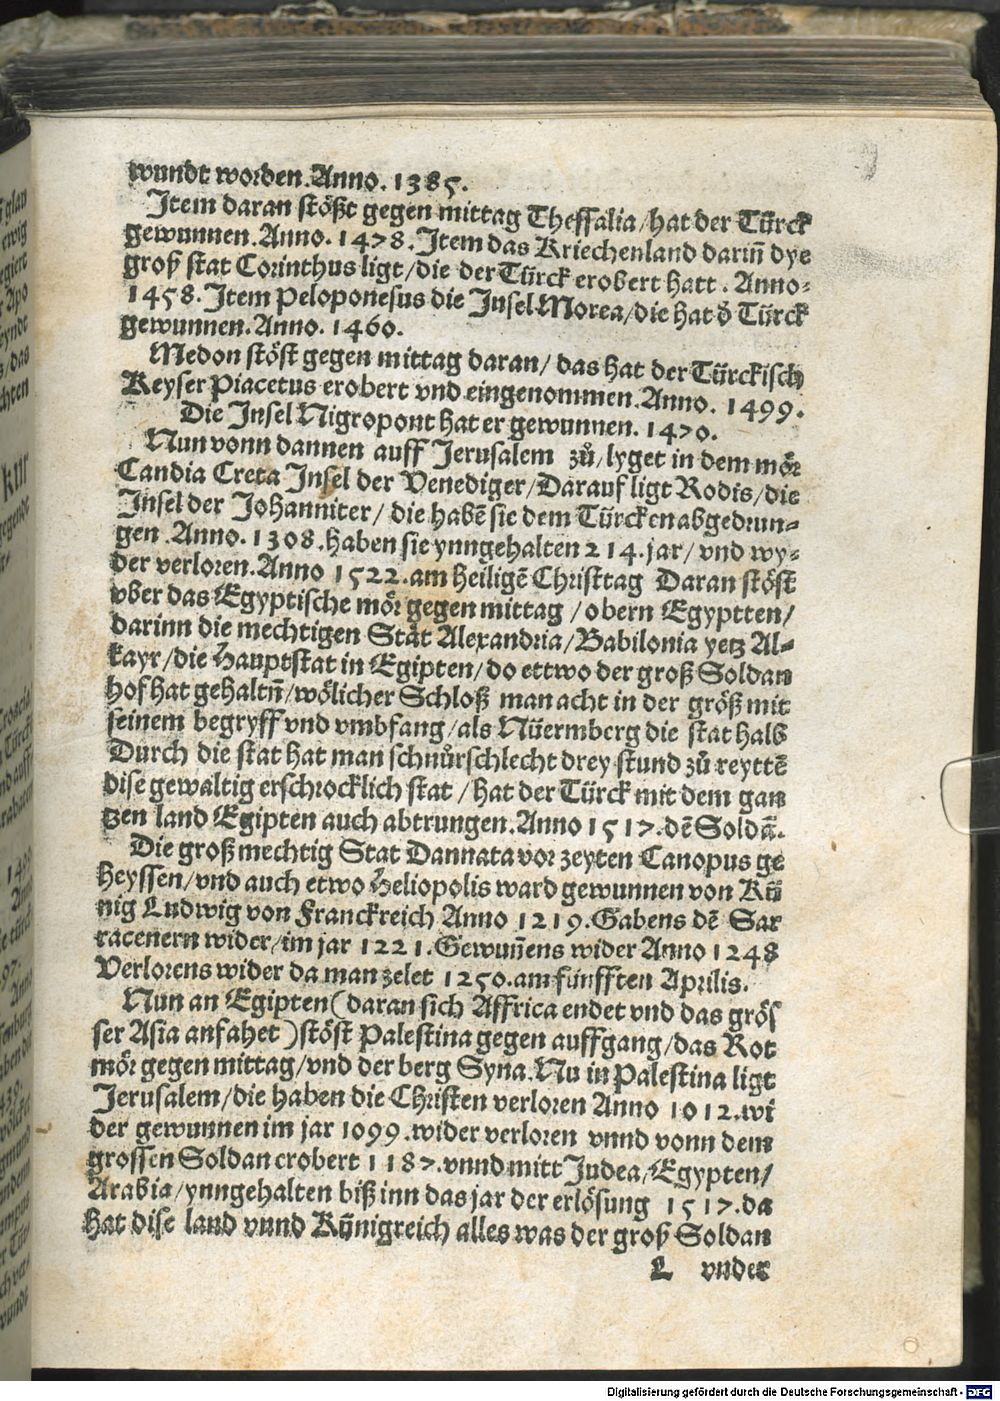 wundt worden. Anno. 1385.
Item daran stößt gegen mittag Thessalia/hat der Türck
gewunnen. Anno. 1478. Item das Kriechenland darin̄ dye
groß stat Corinthus ligt/die der Türck erobert hatt. Anno.
1458. Item Peloponesus die Insel Morea/die hat d̄ Türck
gewunnen. Anno. 1460.
Medon stöst gegen mittag daran/ das hat der Türckisch
Keyser Piacetus erobert vnd eingenommen. Anno. 1499.
Die Insel Nigropont hat er gewunnen. 1470.
Nun vonn dannen auff Jerusalem zů/lyget in dem mör
Candia Creta Insel der Venediger/Darauf ligt Rodis/die
Insel der Johanniter/ die habē sie dem Türcken abgedrun-
gen. Anno. 1308. haben sie ynngehalten 214. jar/ vnd wy-
der verloren. Anno 1522. am heiligē Christtag Daran stöst
vber das Egyptische mör gegen mittag /obern Egyptten/
darinn die mechtigen Stät Alexandria/Babilonia yetz Al-
kayr/die Hauptstat in Egipten/do ettwo der groß Soldan
hof hat gehaltn̄/wölicher Schloß man acht in der größ mit
seinem begryff vnd vmbfang/als Nüermberg die stat halb
Durch die stat hat man schnůrschlecht drey stund zů reyttē
dise gewaltig erschrocklich stat /hat der Türck mit dem gan
tzen land Egipten auch abtrungen. Anno 1517. dē Soldā.
Die großmechtig Stat Dannata vor zeyten Canopus ge
heyssen/vnd auch etwo Heliopolis ward gewunnen von Kü
nig Ludwig von Franckreich Anno 1219. Gabens dē Sar
racenern wider/im jar 1221. Gewun̄ens wider Anno 1248
Verlorens wider da man zelet 1250. am fünfften Aprilis.
Nun an Egipten (daran sich Affrica endet vnd das grös
ser Asia anfahet) stöst Palestina gegen auffgang/das Rot
mör gegen mittag/vnd der berg Syna. Nu in Palestina ligt
Jerusalem/die haben die Christen verloren Anno 1012. wi
der gewunnen im jar 1099. wider verloren vnnd vonn dem
grossen Soldan erobert 1187. vnnd mitt Judea/Egypten/
Arabia/ynngehalten biß inn das jar der erlösung 1517. da
hat dise land vnnd Künigreich alles was der groß Soldan
L vnder
Digitalisierung gefördert durch die Deutsche Forschungsgemeinschaft - DFG